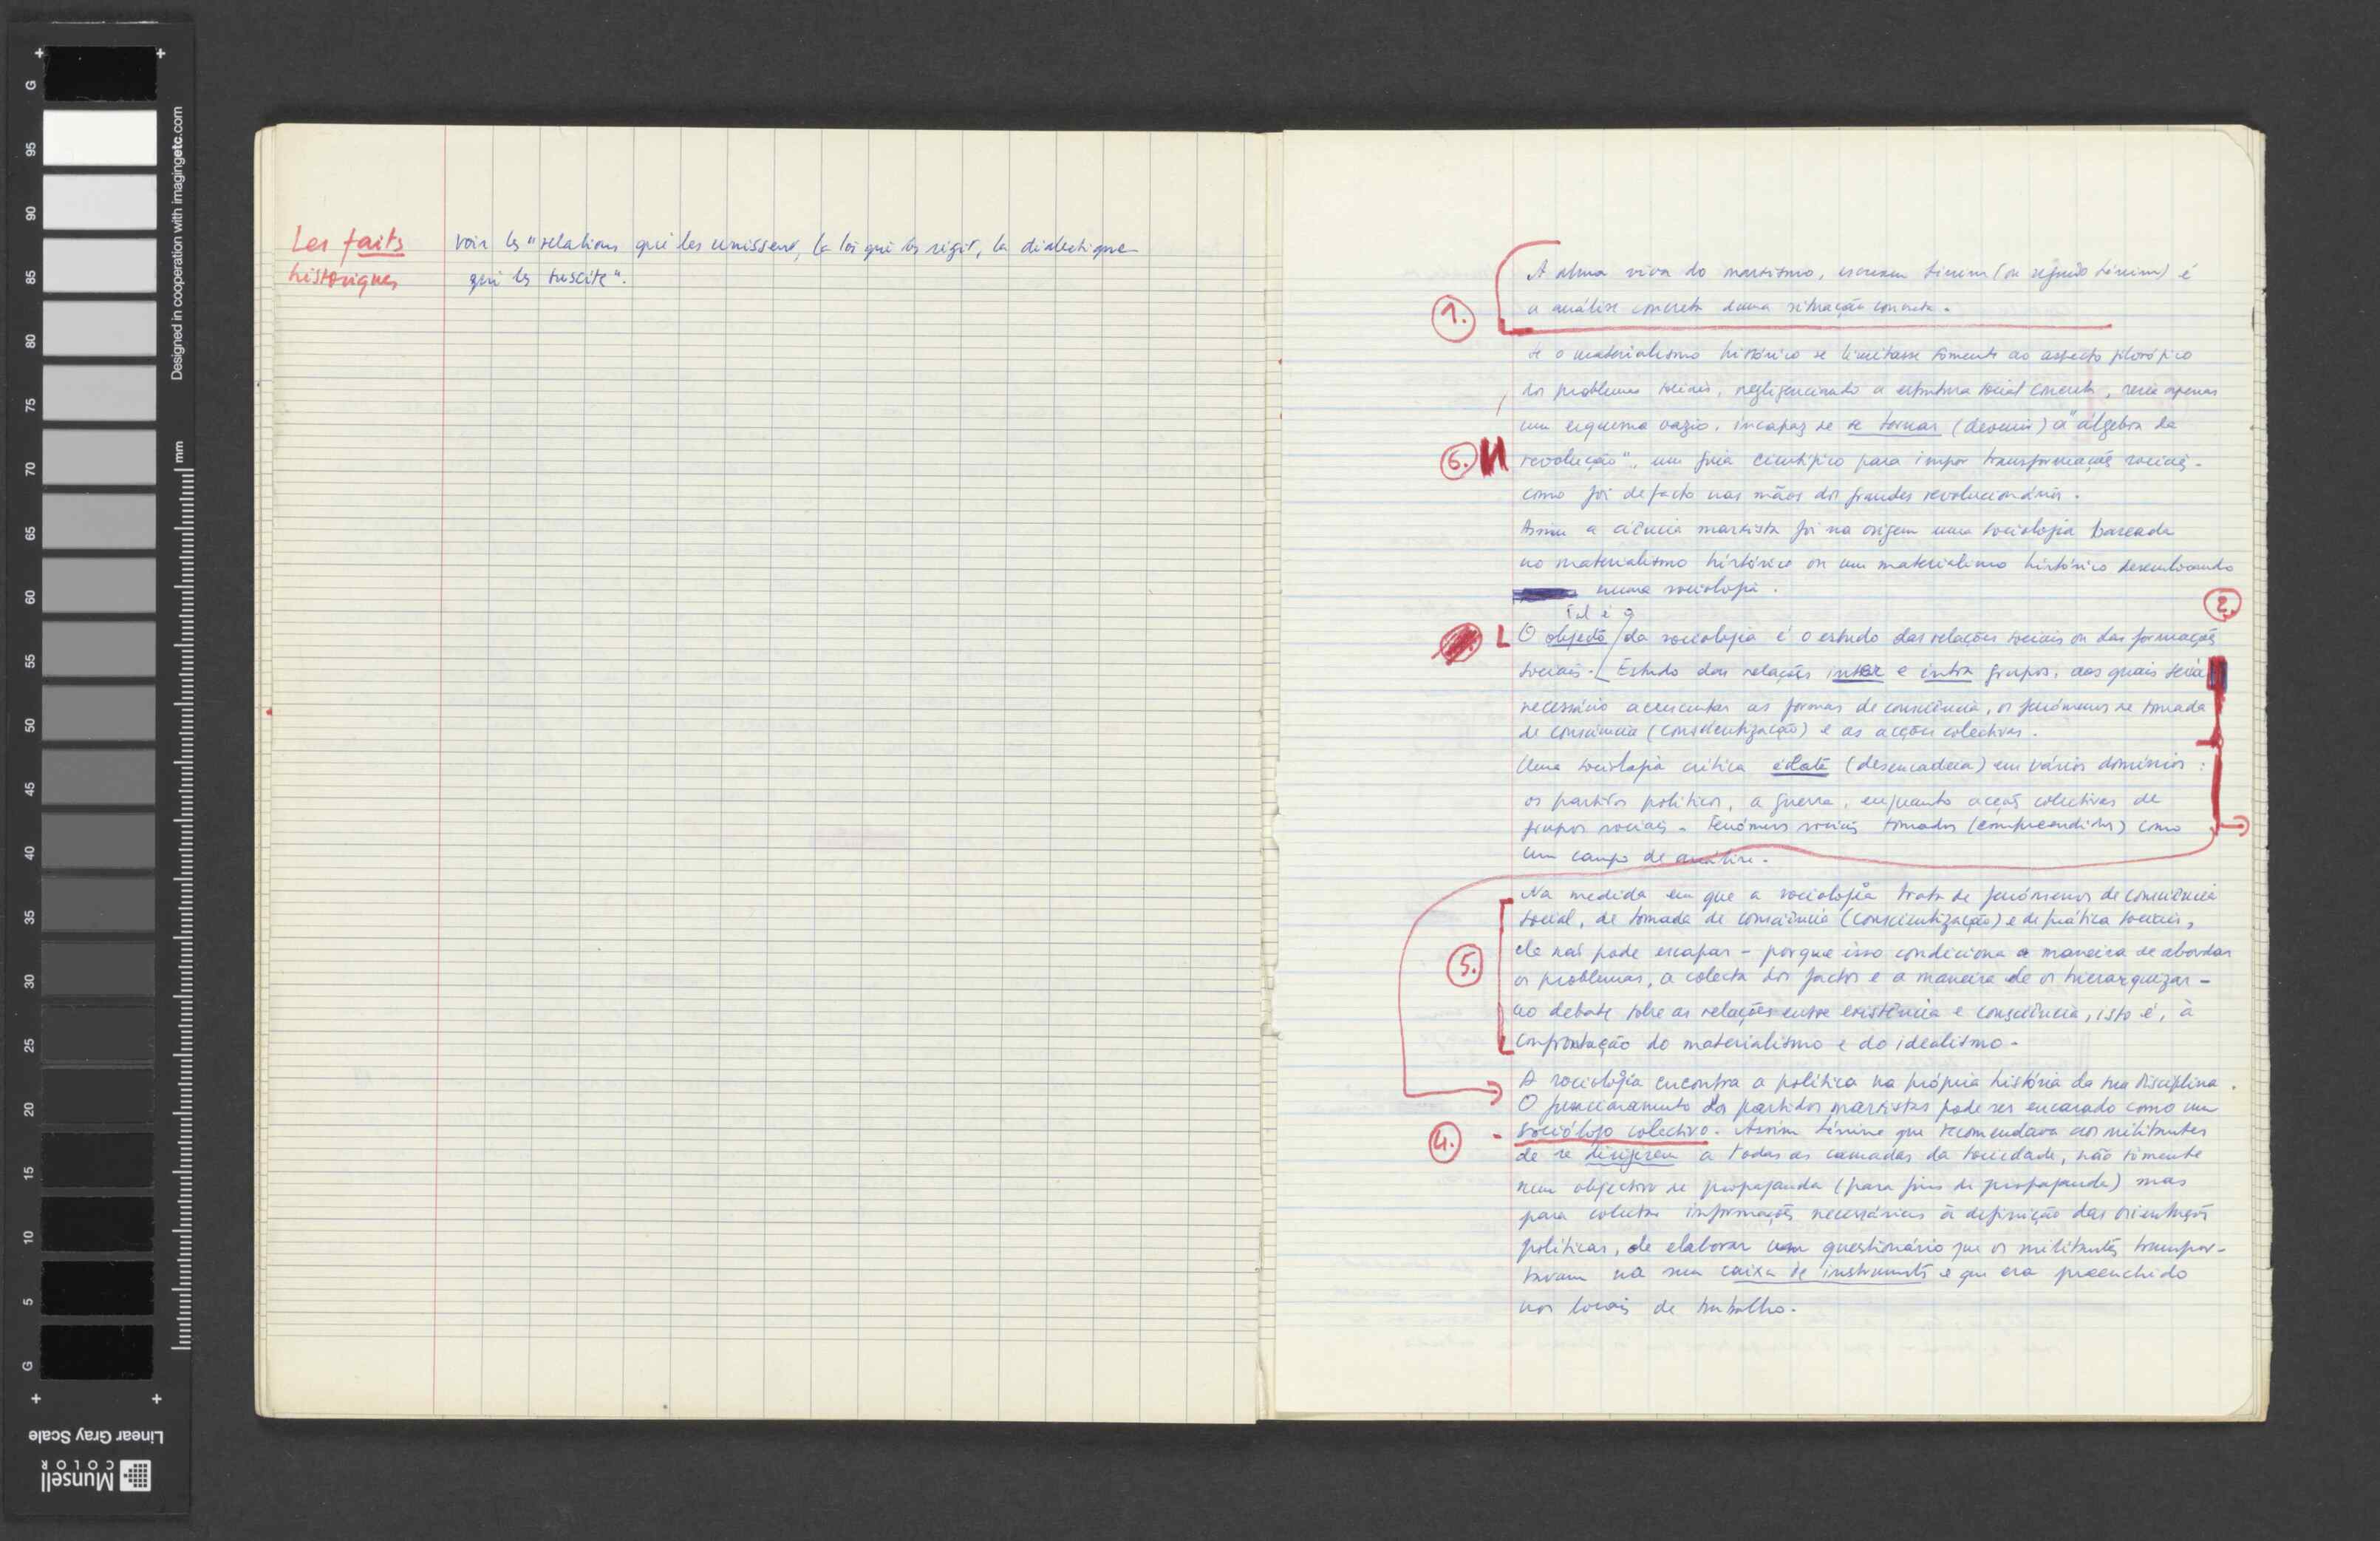 Les faits
historiques
voir les "relations qui les unissent, la loi qui les régit, la dialectique
qui les suscite".
1.
A alma viva do marxismo, escreveu Lénine (ou segundo Lénine) é
a análise concreta duma situação concreta.
Se o materialismo histórico se limitasse sòmente ao aspecto filosófico
dos problemas sociais, negligenciando a estrutura social concreta, seria apenas
um esquema vazio, incapaz de se tornar (devenir) a "álgebra da
6.
revolução", um guia científico para impor transformações sociais.
como foi de facto nas mãos dos grandes revolucionários.
Assim a ciência marxista foi na origem uma sociologia baseada
no materialismo histórico ou um materialismo histórico desembocando
numa sociologia.
2.
O objecto da sociologia é o estudo das relações sociais ou das formações
sociais. Estudo das relações inter e intra grupos, aos quais será
necessário acrescentar as formas de consciência, os fenómenos de tomada
de consciência (conscientização) e as acções colectivas.
Uma sociologia crítica éclate (desencadeia) em vários domínios:
os partidos políticos, a guerra, enquanto acções colectivas de
grupos sociais. Fenómenos sociais tomados (compreendidos) como
um campo de análise.
Na medida em que a sociologia trata de fenómenos de consciência
social, de tomada de consciência (conscientização) e de prática sociais,
5.
ela não pode escapar – porque isso condiciona a maneira de abordar
os problemas, a colecta dos factos e a maneira de os hierarquizar –
ao debate sobre as relações entre existência e consciência, isto é, à
confrontação do materialismo e do idealismo.
A sociologia encontra a política na própria história da sua disciplina.
O funcionamento dos partidos marxistas pode ser encarado como um
4.
sociólogo colectivo. Assim Lénine que recomendava aos militantes
de se dirigirem a todas as camadas da sociedade, não sòmente
num objectivo de propaganda (para fins de propaganda) mas
para colectar informações necessárias à definição das orientações
políticas, de elaborar um questionário que os militantes transpor-
tavam na sua caixa de instrumentos e que era preenchido
nos locais de trabalho.
Designed in cooperation with imagingetc.com
mm
G
95
90
85
80
75
70
65
60
55
50
45
40
35
30
25
20
15
10
5
G
Linear Gray Scale
Munsell
COLOR